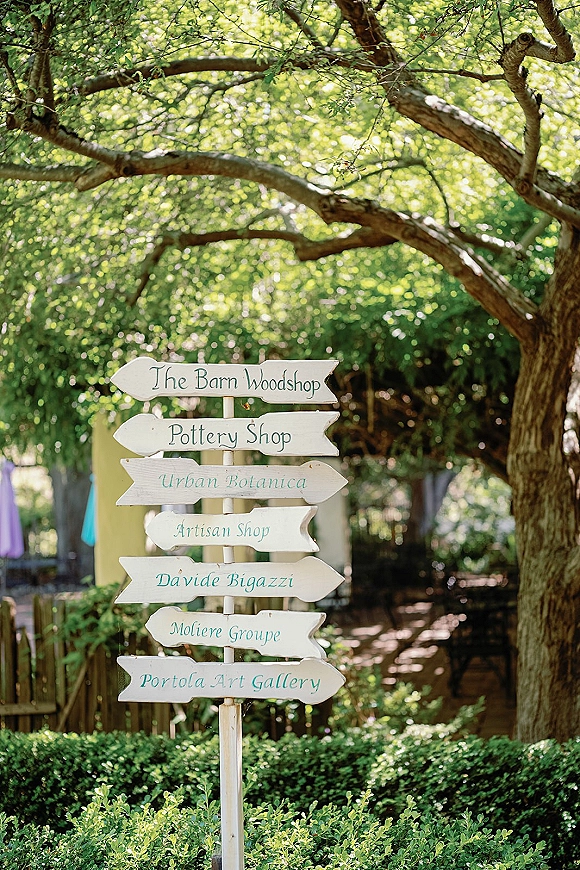 The Barn Woodshop
Pottery Shop
Urban Botanica
Artisan Shop
Davide Bigazzi
Moliere Groupe
Portola Art Gallery